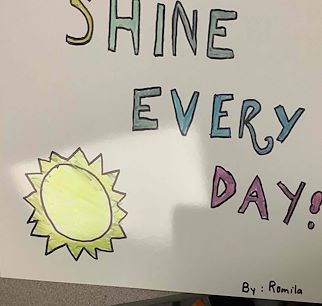 SHINE
EVERY
DAY!
By: Romila